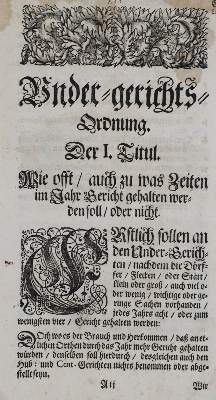 Vnder-gerichts-
Ordnung.
Der I. Titul.
Wie offt / auch zu was Zeiten
im Jahr Gericht gehalten wer-
den soll / oder nicht.
ERstlich sollen an
den Vnder-Gerich-
ten / nachdem die Dörf-
fer / Flecken / oder Stätt-
lein oder groß / auch viel o-
der wenig / wichtige oder ge-
ringe Sachen vorhanden /
jedes Jahrs acht / oder zum
wenigsten vier / Gericht gehalten werden:
Doch wo es der Brauch und Herkommen / daß an et-
lichen Orthen durch das Jahr mehr Gericht gehalten
würden / denselben soll hierdurch / desgleichen auch den
Hub- und Cent-Gerichten nichts benommen oder abge-
stellt seyn.
A ij
Wir